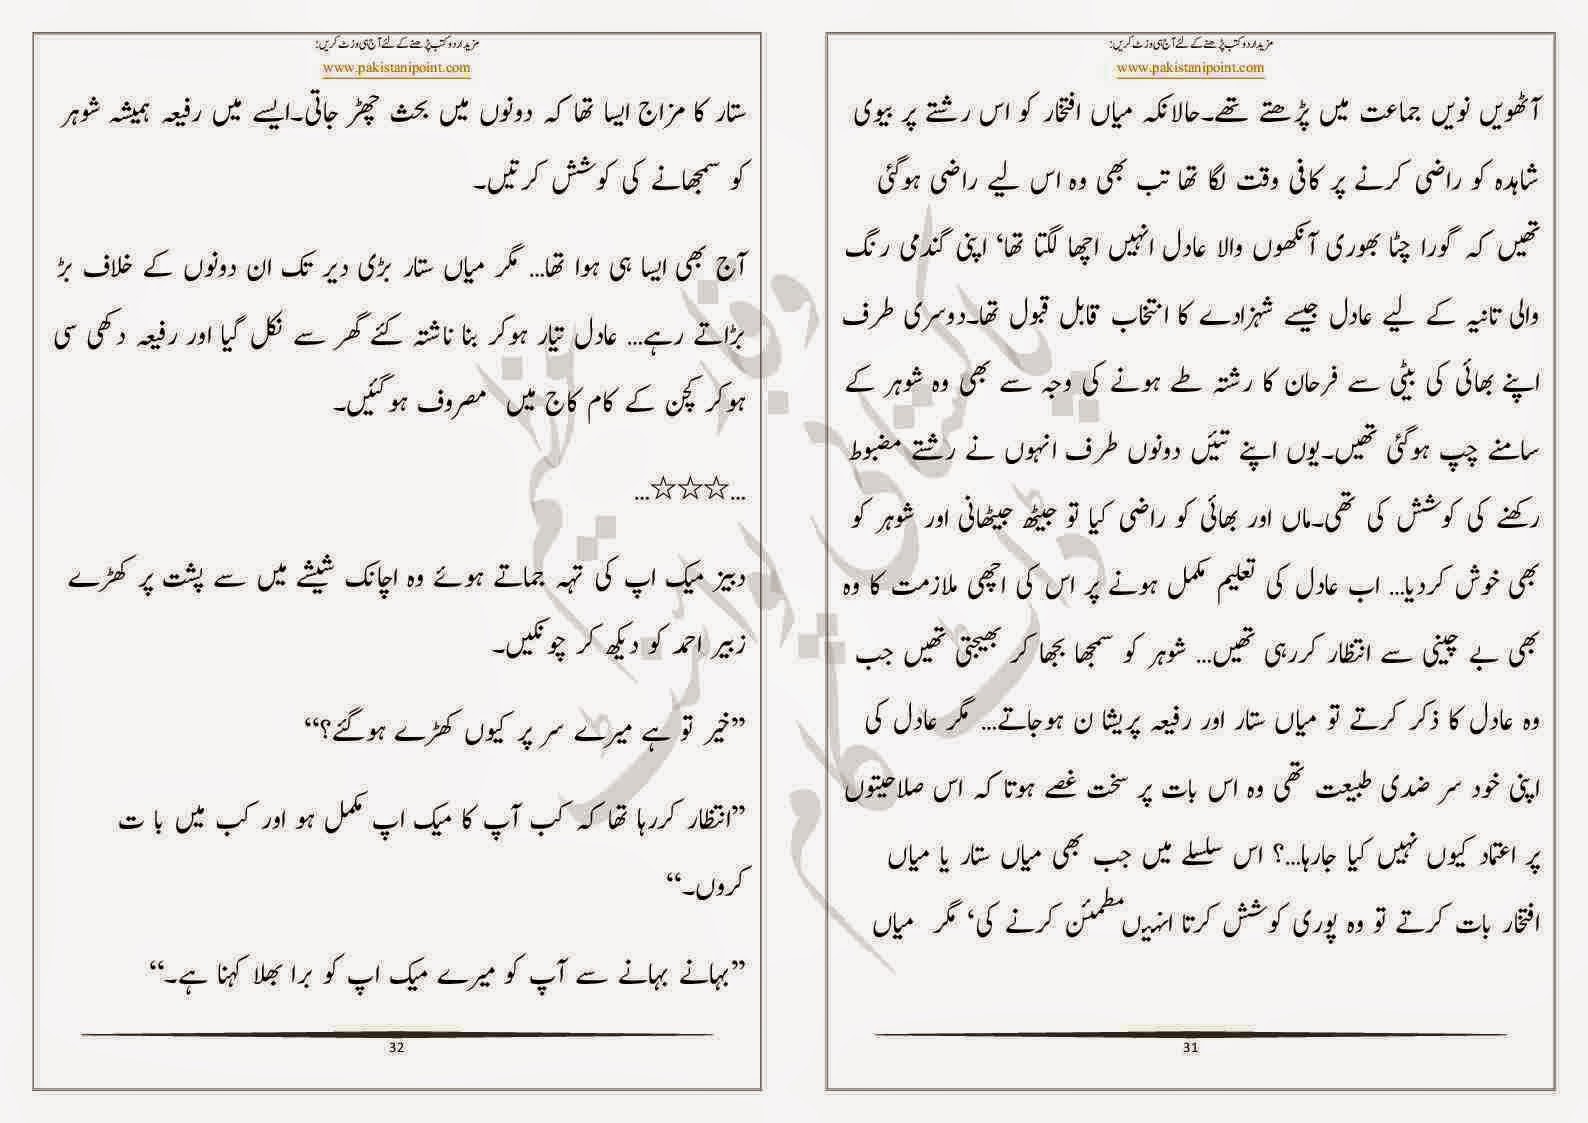 مزید اردو کتب پڑھنے کے لئے آج ہی وزٹ کریں:
www.pakistanipoint.com
آٹھویں نویں جماعت میں پڑھتے تھے۔حالانکہ میاں افتخار کو اس رشتے پر بیوی
شاہدہ کو راضی کرنے پر کافی وقت لگا تھا تب بھی وہ اس لیے راضی ہوگئی
تھیں کہ گورا چٹا بھوری آنکھوں والا عادل انہیں اچھا لگتا تھا‘ اپنی گندمی رنگ
والی تانیہ کے لیے عادل جیسے شہزادے کا انتخاب قابل قبول تھا۔دوسری طرف
اپنے بھائی کی بیٹی سے فرحان کا رشتہ طے ہونے کی وجہ سے بھی وہ شوہر کے
سامنے چپ ہوگئی تھیں۔یوں اپنے تئیں دونوں طرف انہوں نے رشتے مضبوط
رکھنے کی کوشش کی تھی۔ماں اور بھائی کو راضی کیا تو جیٹھ جیٹھانی اور شوہر کو
بھی خوش کردیا... اب عادل کی تعلیم مکمل ہونے پر اس کی اچھی ملازمت کا وہ
بھی بے چینی سے انتظار کررہی تھیں... شوہر کو سمجھا بجھا کر بھیجتی تھیں جب
وہ عادل کا ذکر کرتے تو میاں ستار اور رفیعہ پریشا ن ہوجاتے... مگر عادل کی
اپنی خود سر ضدی طبیعت تھی وہ اس بات پر سخت غصے ہوتا کہ اس صلاحیتوں
پر اعتماد کیوں نہیں کیا جارہا...؟ اس سلسلے میں جب بھی میاں ستار یا میاں
افتخار بات کرتے تو وہ پوری کوشش کرتا انہیں مطمئن کرنے کی‘ مگر میاں
31
مزید اردو کتب پڑھنے کے لئے آج ہی وزٹ کریں:
www.pakistanipoint.com
ستار کا مزاج ایسا تھا کہ دونوں میں بحث چھڑ جاتی۔ایسے میں رفیعہ ہمیشہ شوہر
کو سمجھانے کی کوشش کرتیں۔
آج بھی ایسا ہی ہوا تھا... مگر میاں ستار بڑی دیر تک ان دونوں کے خلاف بڑ
بڑاتے رہے... عادل تیار ہوکر بنا ناشتہ کئے گھر سے نکل گیا اور رفیعہ دکھی سی
ہوکر کچن کے کام کاج میں مصروف ہوگئیں۔
...☆☆☆...
دبیز میک اپ کی تہہ جماتے ہوئے وہ اچانک شیشے میں سے پشت پر کھڑے
زبیر احمد کو دیکھ کر چونکیں۔
”خیر تو ہے میرے سر پر کیوں کھڑے ہوگئے؟“
”انتظار کررہا تھا کہ کب آپ کا میک اپ مکمل ہو اور کب میں با ت
کروں۔“
”بہانے بہانے سے آپ کو میرے میک اپ کو برا بھلا کہنا ہے۔“
32